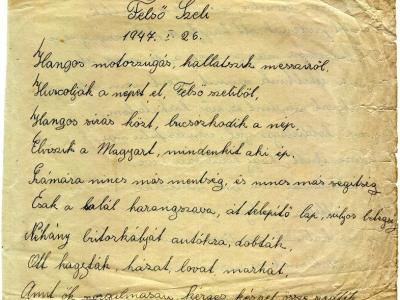 Felső Szeli
1947. I. 26.
Hangos motorzúgás, hallatszik messziről,
Hurcolják a népet el, Felső szeliből,
Hangos sirás közt, bucsozkodik a nép,
Elviszik a Magyart, mindenkit aki ép,
Számára nincs más mentség, és nincs más segitség
Csak a halál harangszava, át telepitő lap, súlyos betegség
Néhány bútorkáját autókra, dobták,
Ott hagyták, házat, lovat marhát,
Amit ők szorgalmasan, kérges kézzel össze